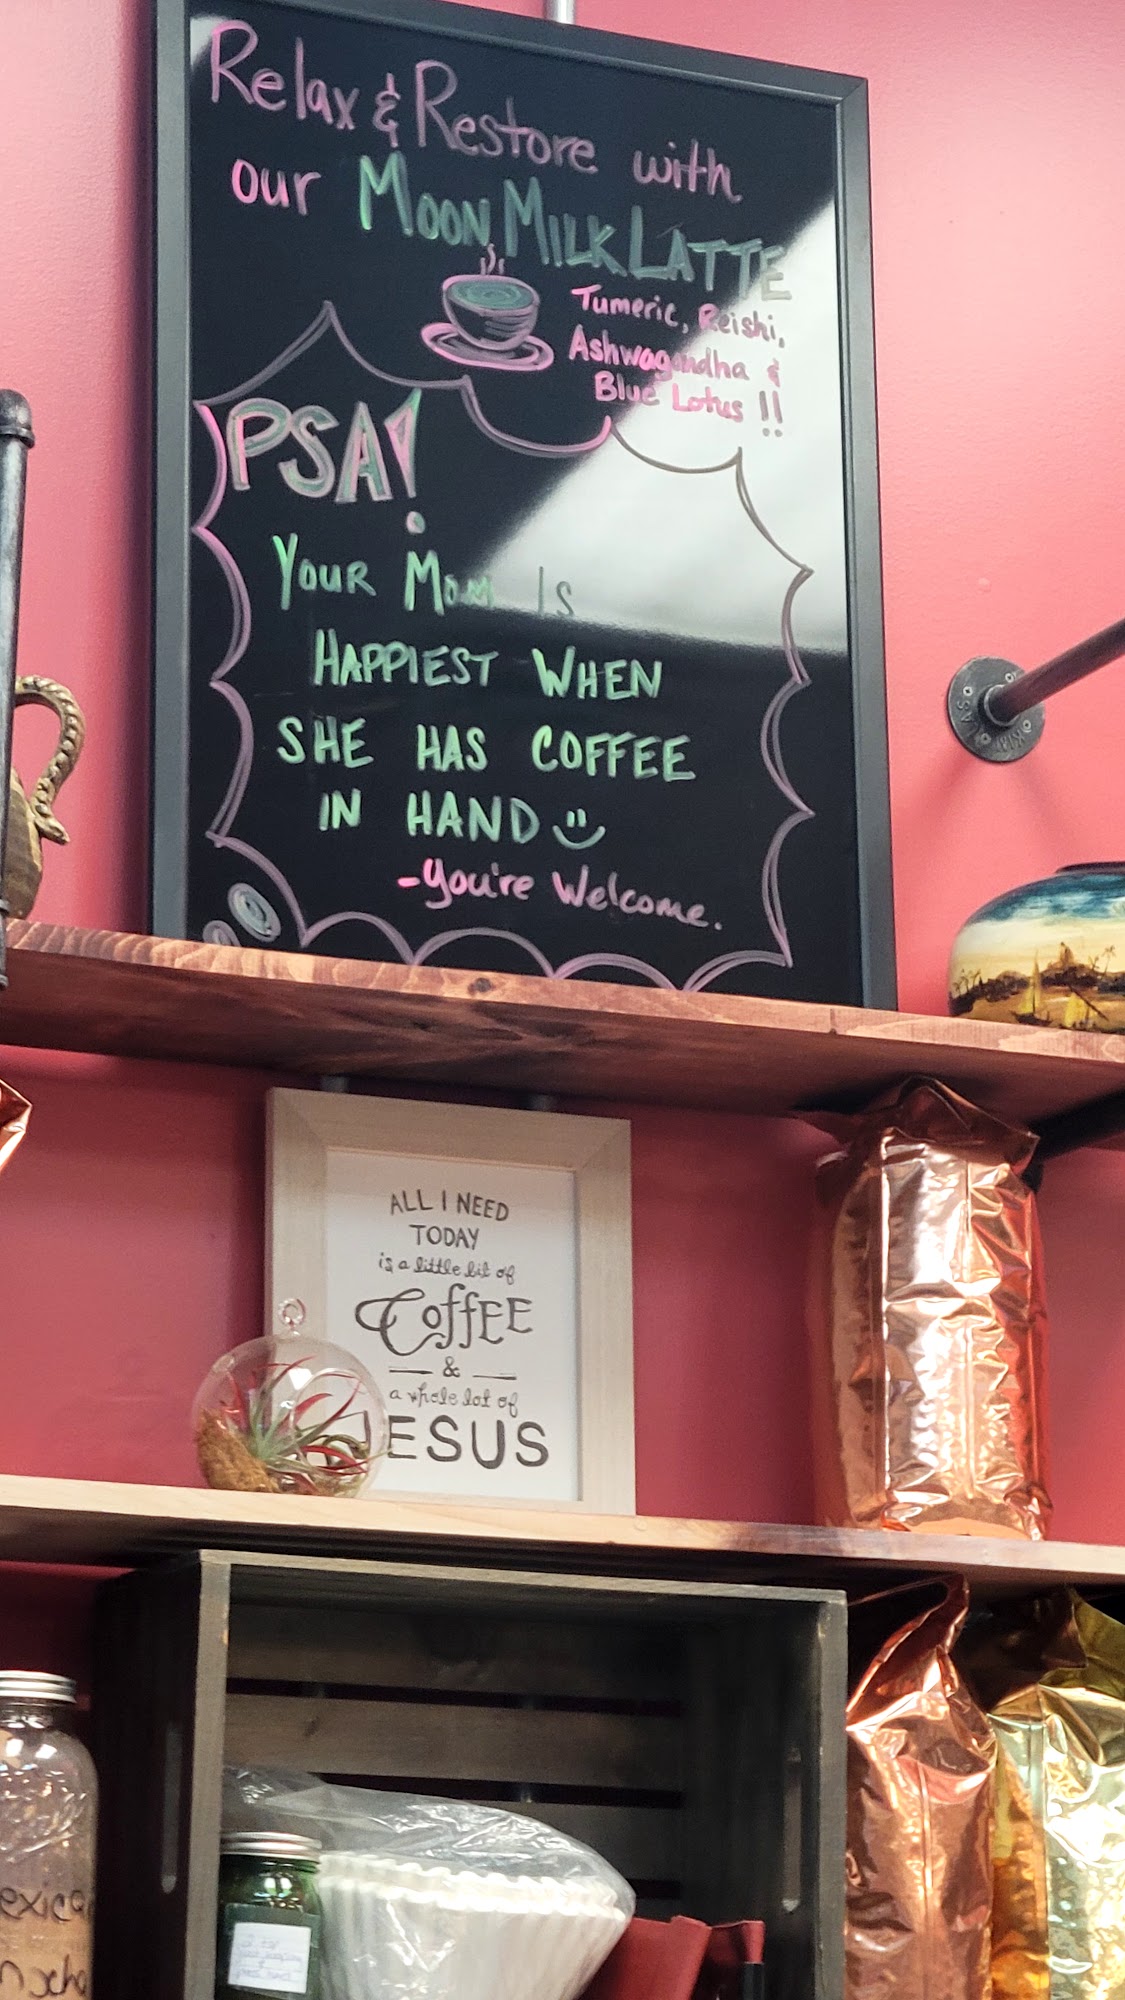 Relax & Restore with
our MOON MILK LATTE
Tumeric, Reishi,
Ashwagandha &
Blue Lotus !!
PSA!
YOUR MOM IS
HAPPIEST WHEN
SHE HAS COFFEE
IN HAND
-You're Welcome.
ALL I NEED
TODAY
is a little bit of
COFFEE
&
a whole lot of
JESUS